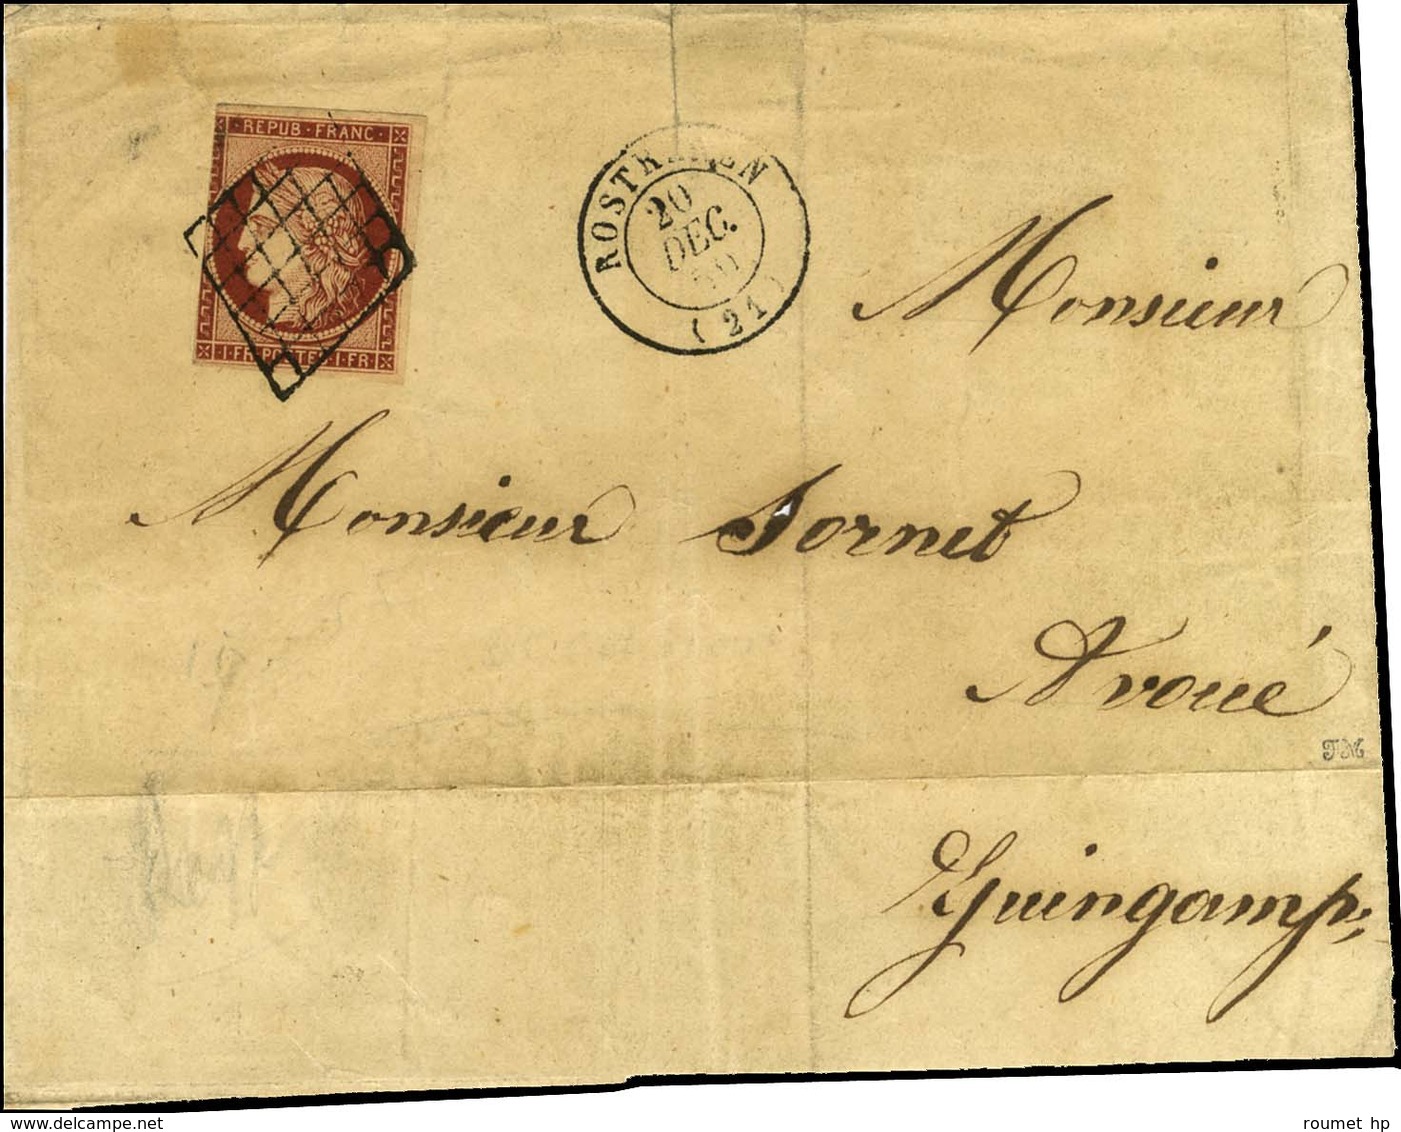 REPUB · FRANC ·
· 1 · FR · POSTES · 1 · FR ·
ROSTRENEN
20
DEC.
50
(21)
Monsieur
Monsieur Sornet
Avoué
JM
Guingamp,
www.delcampe.net
roumet hp